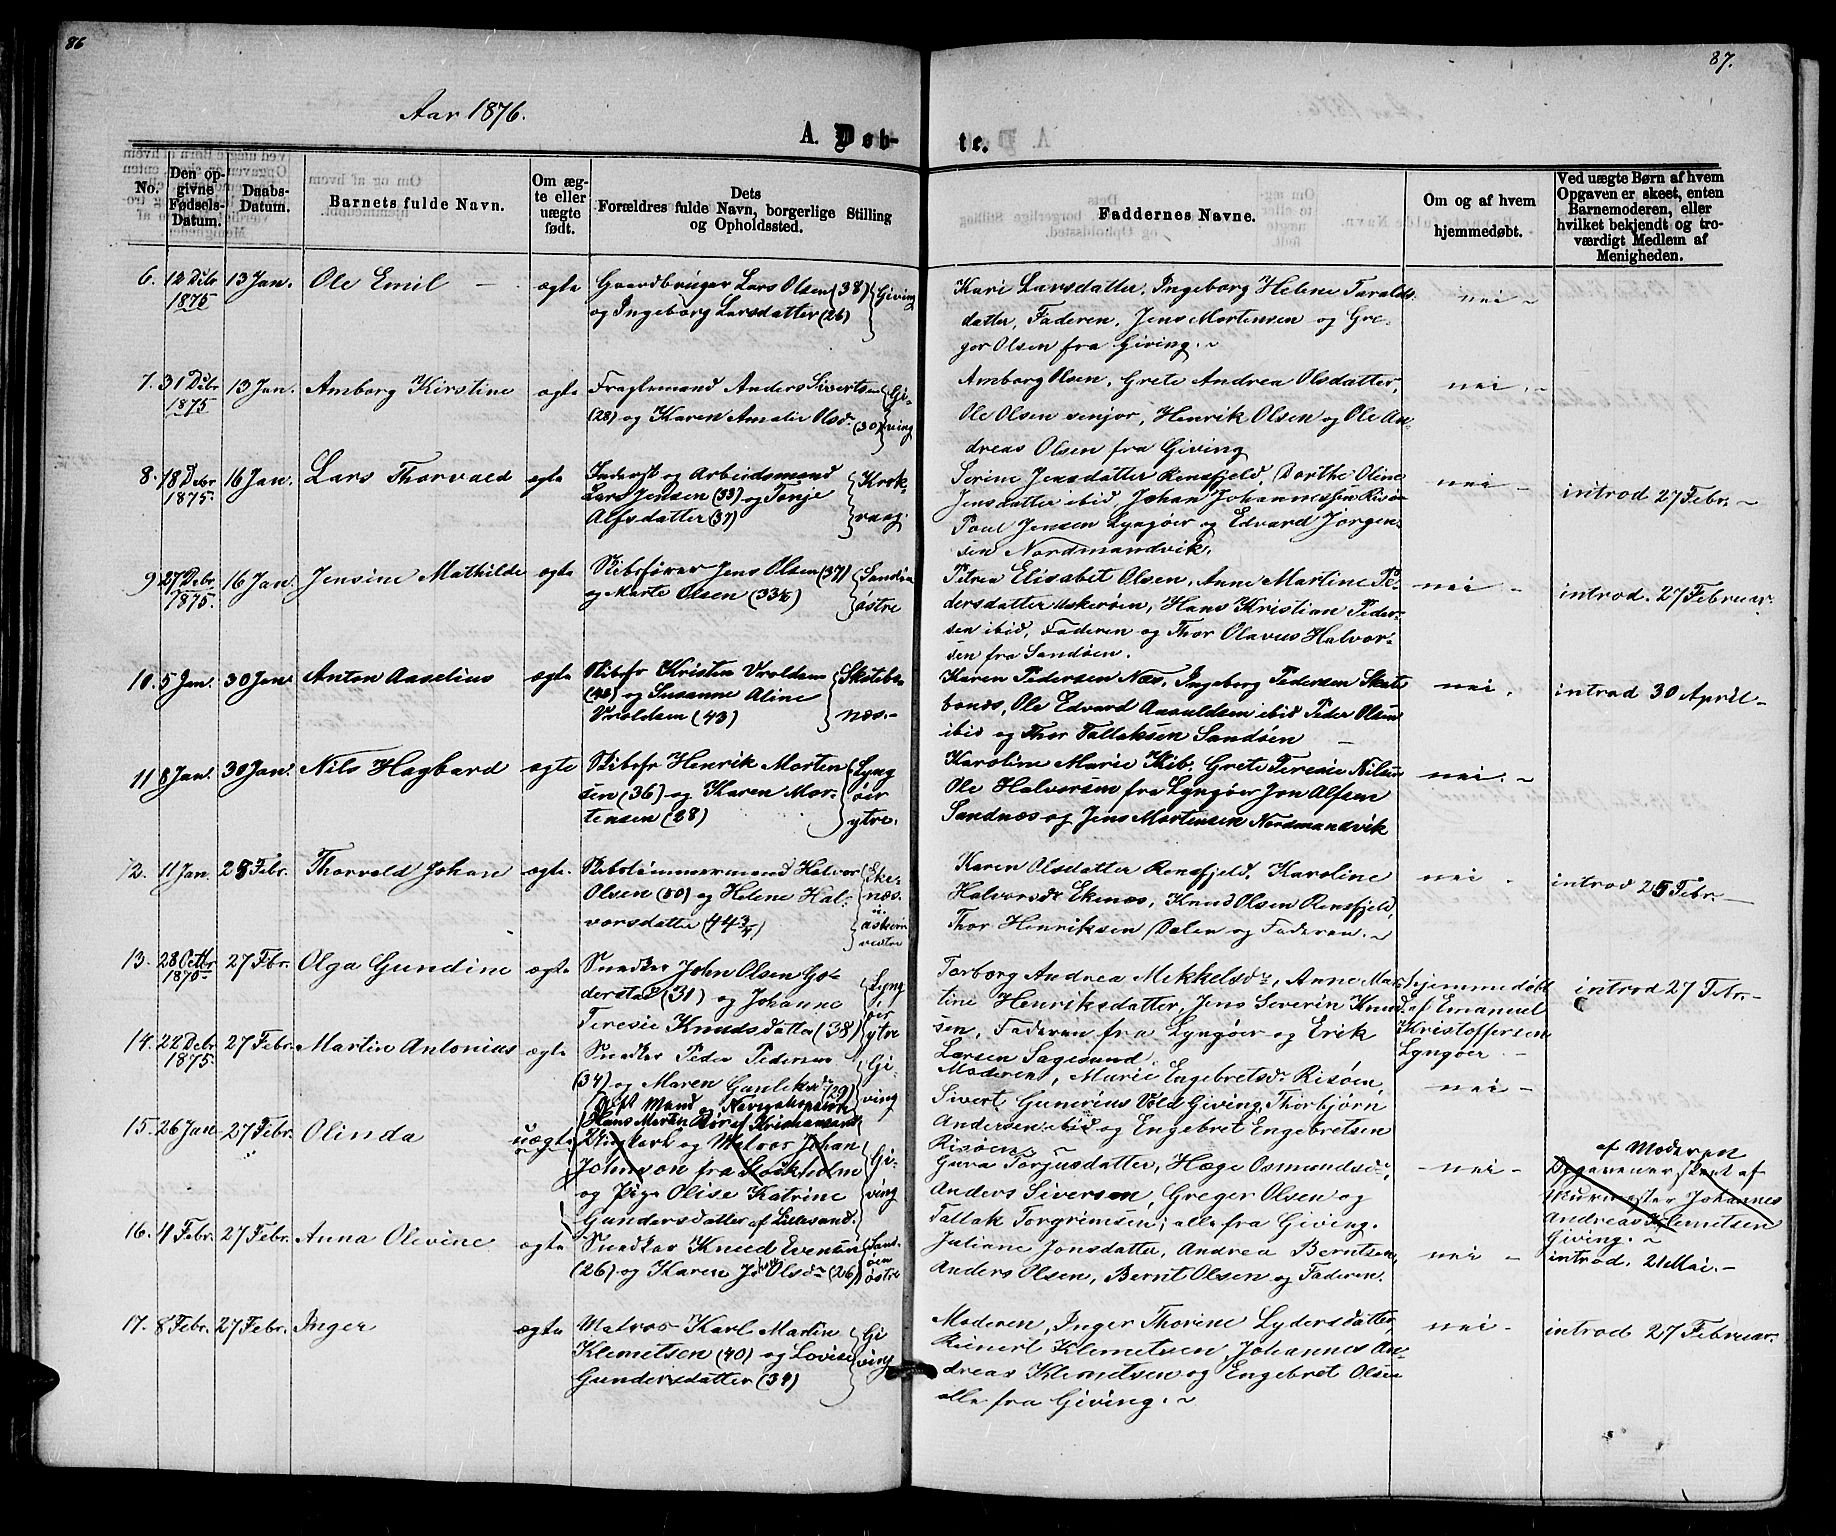 86
87.
Aar 1876.
A. Døb-
te.
No.
Den op-
givne
Fødsels-
Datum.
Daabs-
Datum.
Barnets fulde Navn.
Om æg-
te eller
uægte
født.
Dets
Forældres fulde Navn, borgerlige Stilling
og Opholdssted.
Faddernes Navne.
Om og af hvem
hjemmedøbt.
Ved uægte Børn af hvem
Opgaven er skeet, enten
Barnemoderen, eller
hvilket bekjendt og tro-
værdigt Medlem af
Menigheden.
6. 12 Dcbr 1875 13 Jan. Ole Emil - ægte
Gaardbruger Lars Olsen (38)
og Ingeborg Larsdatter (26)
Giving
Kari Larsdatter, Ingeborg Helene Taralds-
datter, Faderen, Jens Mortensen og Gre-
ger Olsen fra Giving.
nei
7. 31 Dcbr 1875 13 Jan. Amborg Kirstine ægte
Fragtemand Anders Sivertsen
(28) og Karen Amalie Olsdr (30)
Gi-
ving
Amborg Olsen, Grete Andrea Olsdatter,
Ole Olsen senjor, Henrik Olsen og Ole An-
dreas Olsen fra Giving
nei.
8. 18 Dcbr 1875. 16 Jan. Lars Thorvald ægte
Inderst og Arbeidsmand
Lars Jensen (33) og Tonje
Alfsdatter (37)
Krok-
vaag.
Serine Jensdatter Rensfjeld, Dorthe Oline
Jensdatter ibid Johan Johannessen Risøen
Poul Jensen Lyngøer og Edvard Jørgen-
sen Nordmandvik.
nei -
introd 27 Febr.
9 27 Debr 1875. 16 Jan. Jensine Mathilde ægte
Skibsfører Jens Olsen (37)
og Marte Olsen (33½)
Sandøen
østre
Petrea Elisabet Olsen, Anne Martine Pe-
dersdatter Askerøen, Hans Kristian Peder-
sen ibid, Faderen og Thor Olavus Halvor-
sen fra Sandøen.
nei -
introd. 27 Februar.
10. 5 Jan. 30 Jan. Anton Aaselius ægte
Skibsfr Kristen Vroldsen
(48) og Susanne Aline
Vroldsen (43)
Skutebs-
næs.-
Karen Pedersen Næs, Ingeborg Pedersen Skute
bsnæs, Ole Edvard Aasuldsen ibid Peder Olsen
ibid og Thor Tallaksen Sandøen
nei.
introd 30 April
11 8 Jan. 30 Jan. Nils Hagbard ægte
Skibsfr Henrik Morten-
sen (36) og Karen Mor-
tensen (28)
Lyng
øer
ytre.
Karoline Marie Kib, Grete Teresie Nilsen
Ole Halvorsen fra Lyngøer Jon Alfsen
Sandnæs og Jens Mortensen Nordmandvik
nei.
12. 11 Jan. 25 Febr. Thorvald Johan ægte.
Skibstømmermand Halvor
Olsen (50) og Helene Hal-
vorsdatter (44¾)
Eke-
næs.
Karen Olsdatter Rensfjeld, Karoline
Halvorsdr Ekenæs, Knud Olsen Rensfjeld,
Thor Henriksen Dalen og Faderen.
nei.
introd 25 Febr.
13. 28 Octbr 1875 27 Fbr. Olga Gundine ægte
Snedker John Olsen Go-
derstad (31) og Johanne
Teresie Knudsdatter (38)
Lyng
øer
ytre
Torborg Andrea Mikkelsdr, Anne Mar-
tine Henriksdatter, Jens Severin Knud-
sen, Faderen fra Lyngøer og Erik
Larsen Sagesund.
hjemmedøbt
af Emanuel
Kristoffersen
Lyngøer
introd 27 Febr.
14. 22 Debr 1875. 27 Febr. Martin Antonius ægte
Snedker Peder Pedersen
(34) og Maren Gunleksdr (29)
Gi-
ving
Moderen, Marie Engebretsd. Risøen,
Sivert Gunerius Vold Giving, Thorbjørn
Andersen ibid og Engebret Engebretsen
Risøen
nei
15. 26 Jan 27 Febr. Olinda uægte
Hans Martin af Kristiansand
Ungkarl og Matros Johan
Johnson fra Stockholm
og Pige Olise Katrine
Gundersdatter af Lillesand.
Gi-
ving
Gura Torjusdatter, Hæge Osmundsdr,
Anders Siversen, Greger Olsen og
Tallak Torgrimsen, alle fra Giving.
nei
af Moderen
Opgaven er skeet af
Murmester Johannes
Andreas Klemetsen
Giving.
16. 4 Febr. 27 Febr. Anna Olevine ægte
Snedker Knud Evensen
(26) og Karen Olsdr (26)
Sand-
øen
østre
Juliane Jonsdatter, Andrea Berntsen,
Anders Olsen, Bernt Olsen og Faderen.
nei
introd. 21 Mai.
17. 8 Febr. 27 Febr. Inger ægte
Matros Karl Martin
Klemetsen (40) og Lovise
Gundersdatter (34)
Gi
ving
Moderen, Inger Thorine Lydersdatter,
Reinert Klemetsen, Johannes An-
dreas Klemetsen og Engebret Olsen
alle fra Giving.
nei
introd 27 Februar.